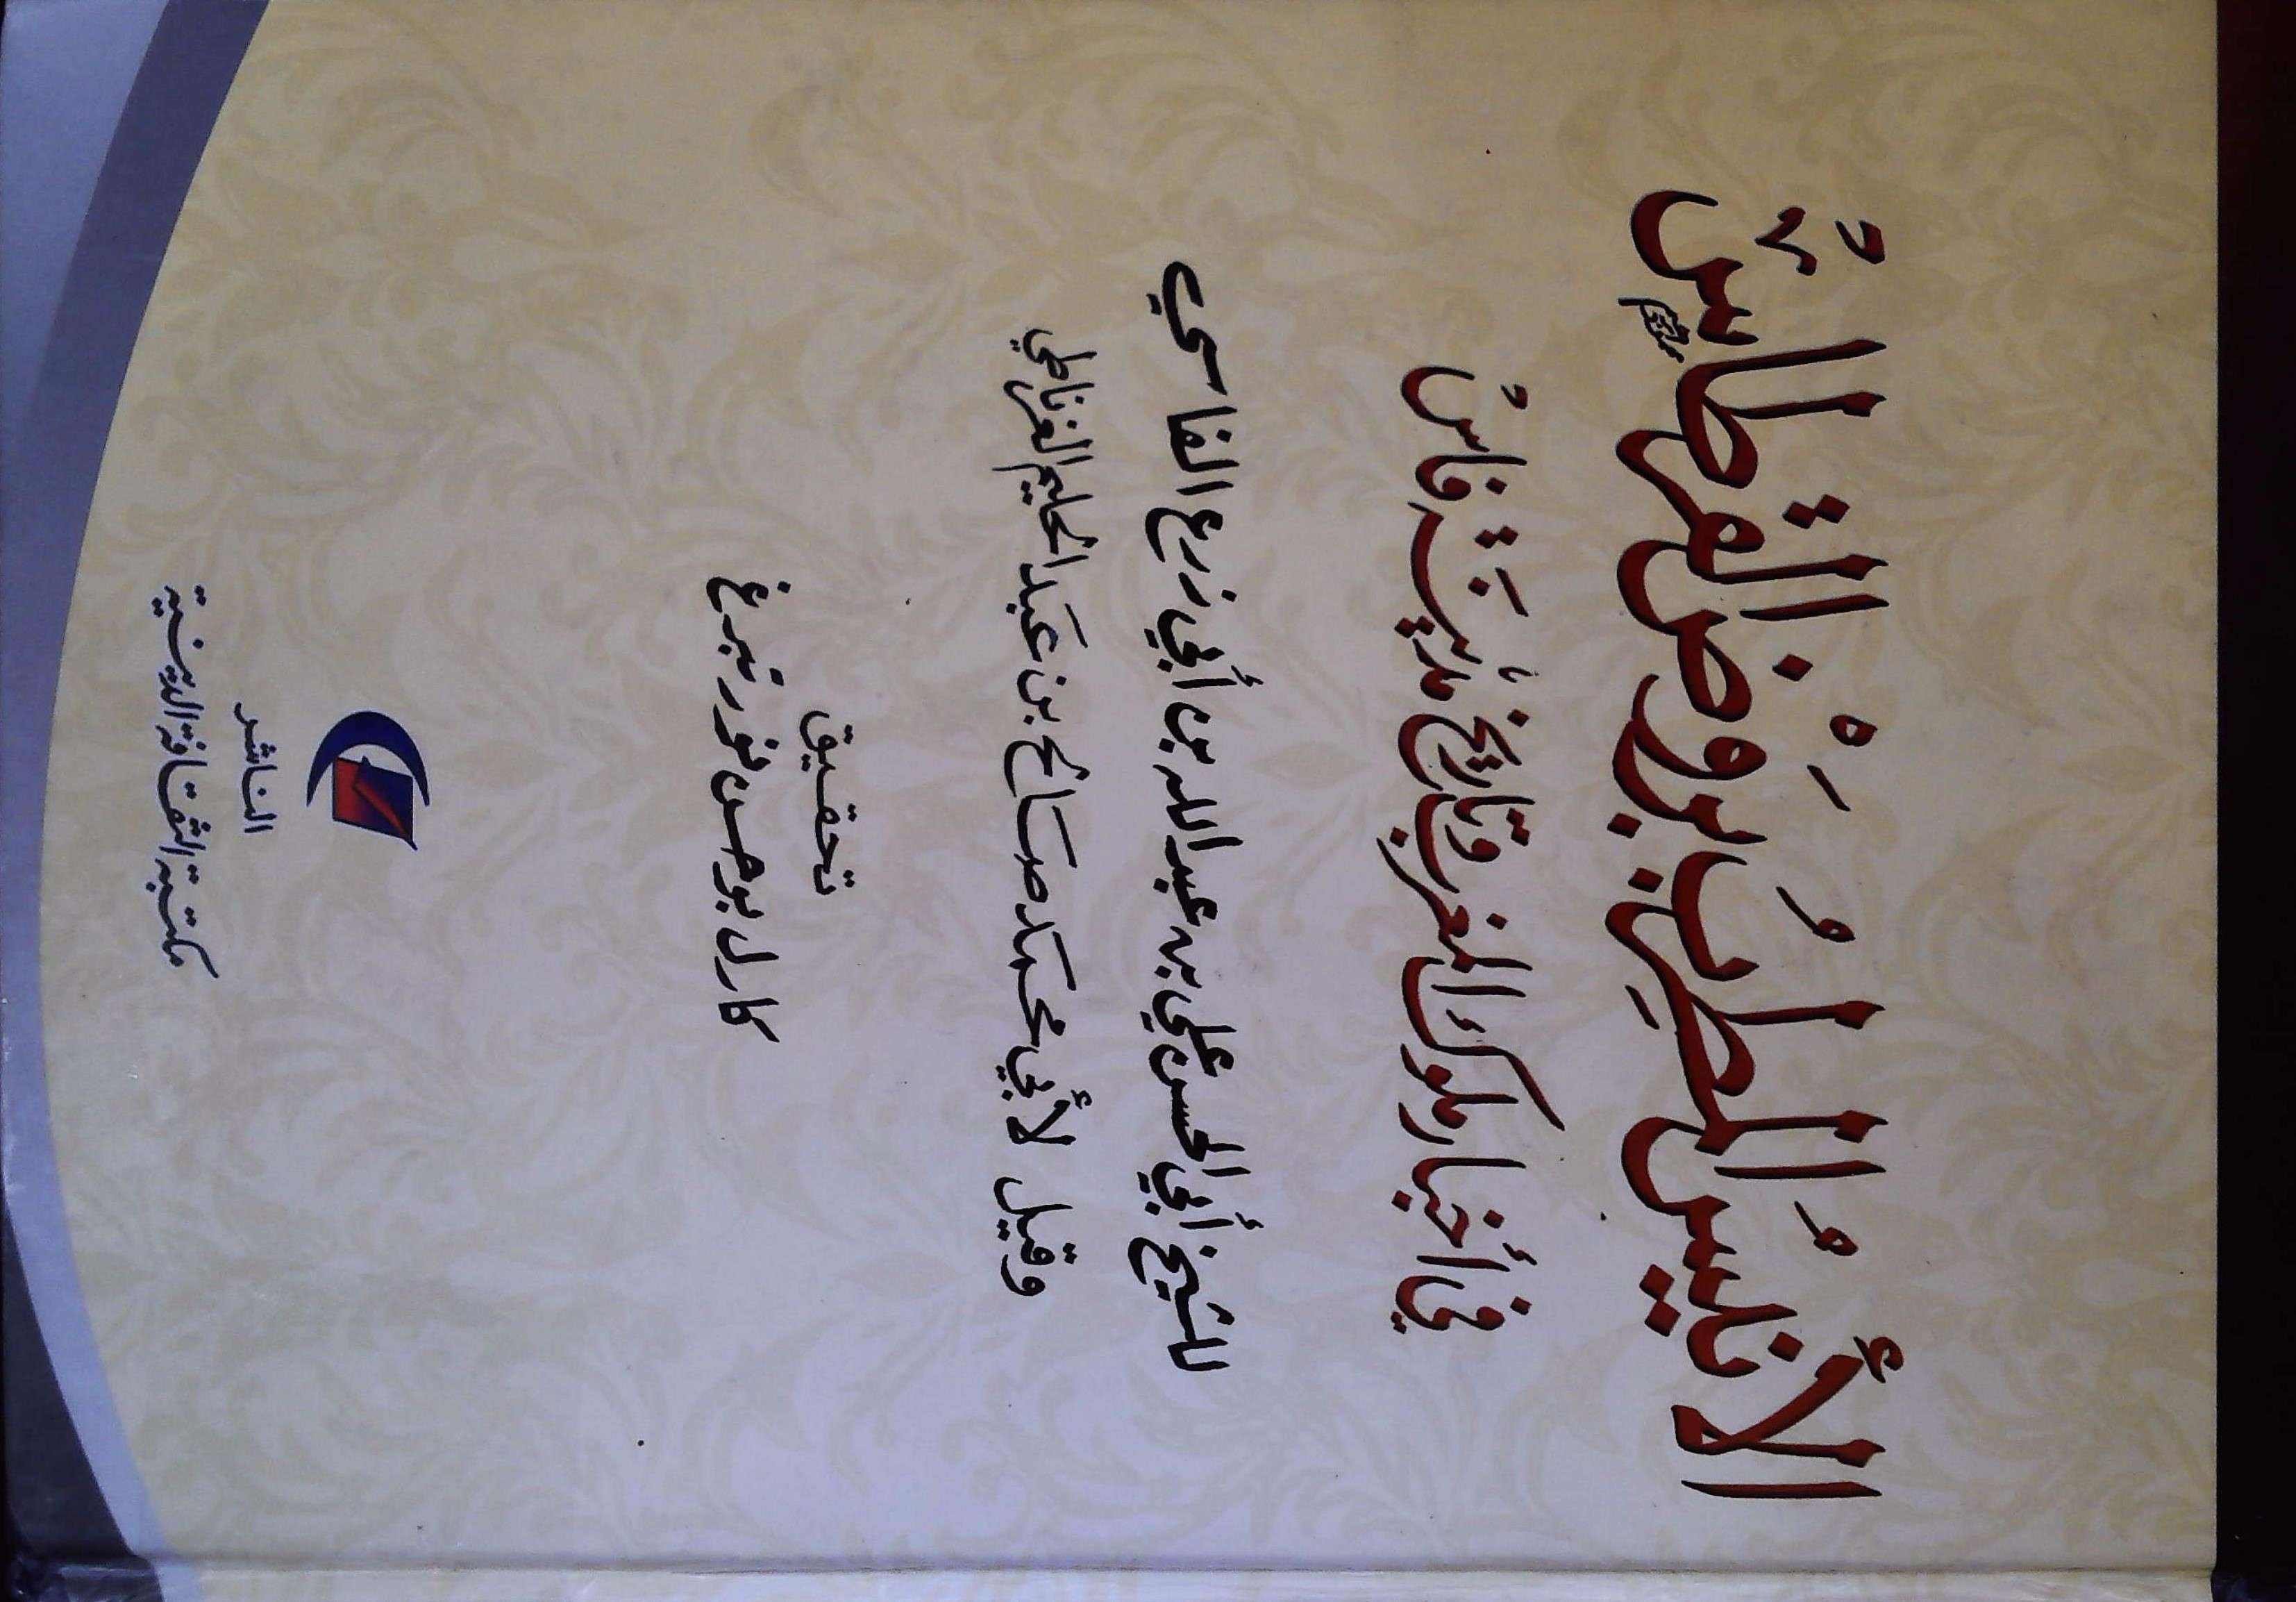 الأنيس المطرب بروض القرطاس
في أخبار ملوك المغرب وتاريخ مدينة فاس
للشيخ أبي الحسن علي بن عبد الله بن أبي زرع الفاسي
وقيل لأبي محمد صالح بن عبد الحليم الغرناطي
تحقيق
كارل يوحن تورنبرغ
الناشر
مكتبة الثقافة الدينية